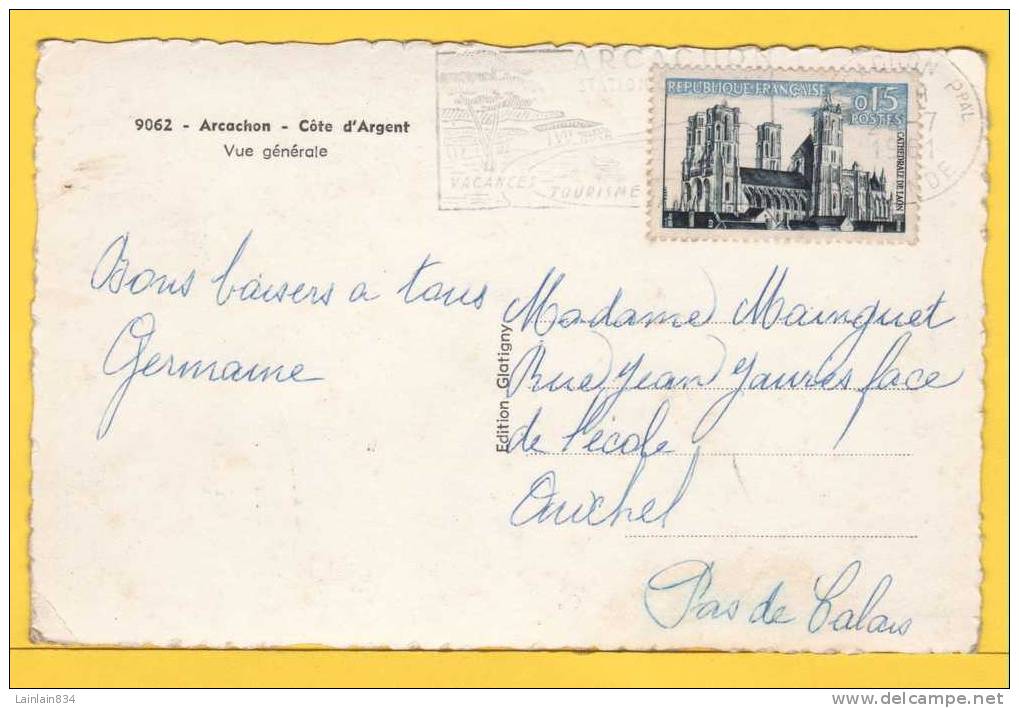 9062 - Arcachon - Côte d'Argent
Vue générale
ARCACHON
VACANCES
TOURISME
REPUBLIQUE FRANÇAISE
0,15
POSTES
CATHEDRALE DE LAON
PPAL
1961
Bons baisers a tous
Germaine
Edition Glatigny
Madame Mainguet
Rue Jean Jaurès face
de l'école
Auchel
Pas de Calais
Lainlain834
www.delcampe.net